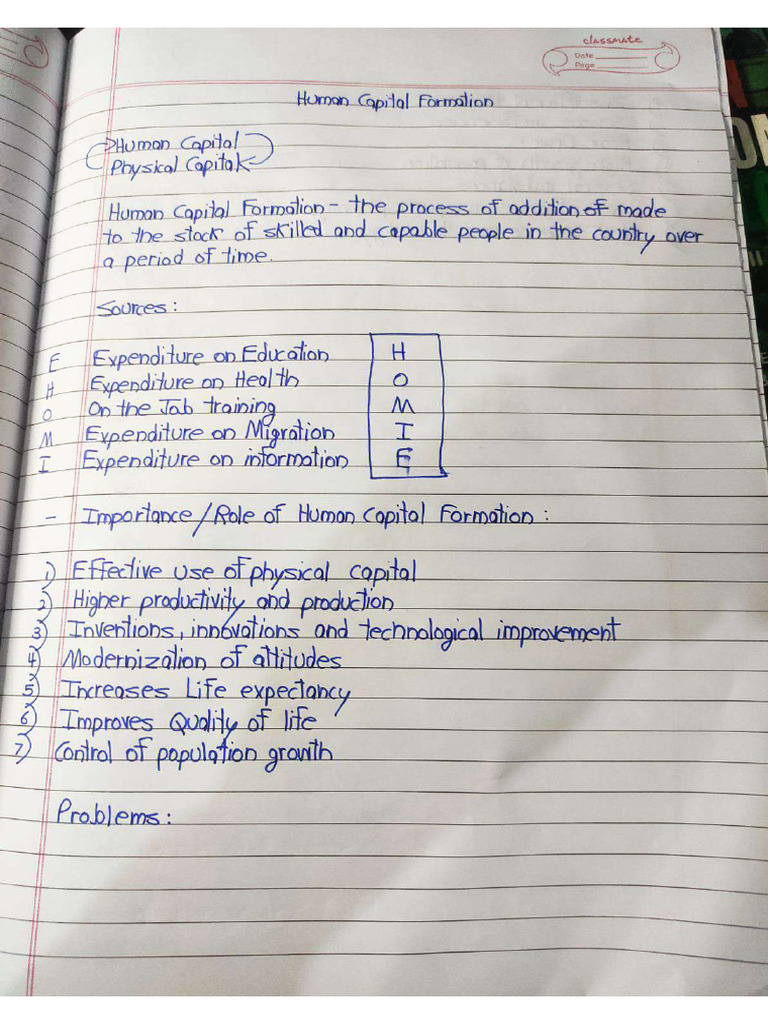 classmate
Date
Page
Human Capital Formation
Human Capital
Physical Capital
Human Capital Formation - the process of addition of made
to the stock of skilled and capable people in the country over
a period of time.
Sources:
E Expenditure on Education H
H Expenditure on Health O
O On the Job training M
M Expenditure on Migration I
I Expenditure on information E
- Importance/Role of Human Capital Formation:
1) Effective use of physical capital
2) Higher productivity and production
3) Inventions, innovations and technological improvement
4) Modernization of attitudes
5) Increases Life expectancy
6) Improves Quality of life
7) Control of population growth
Problems: